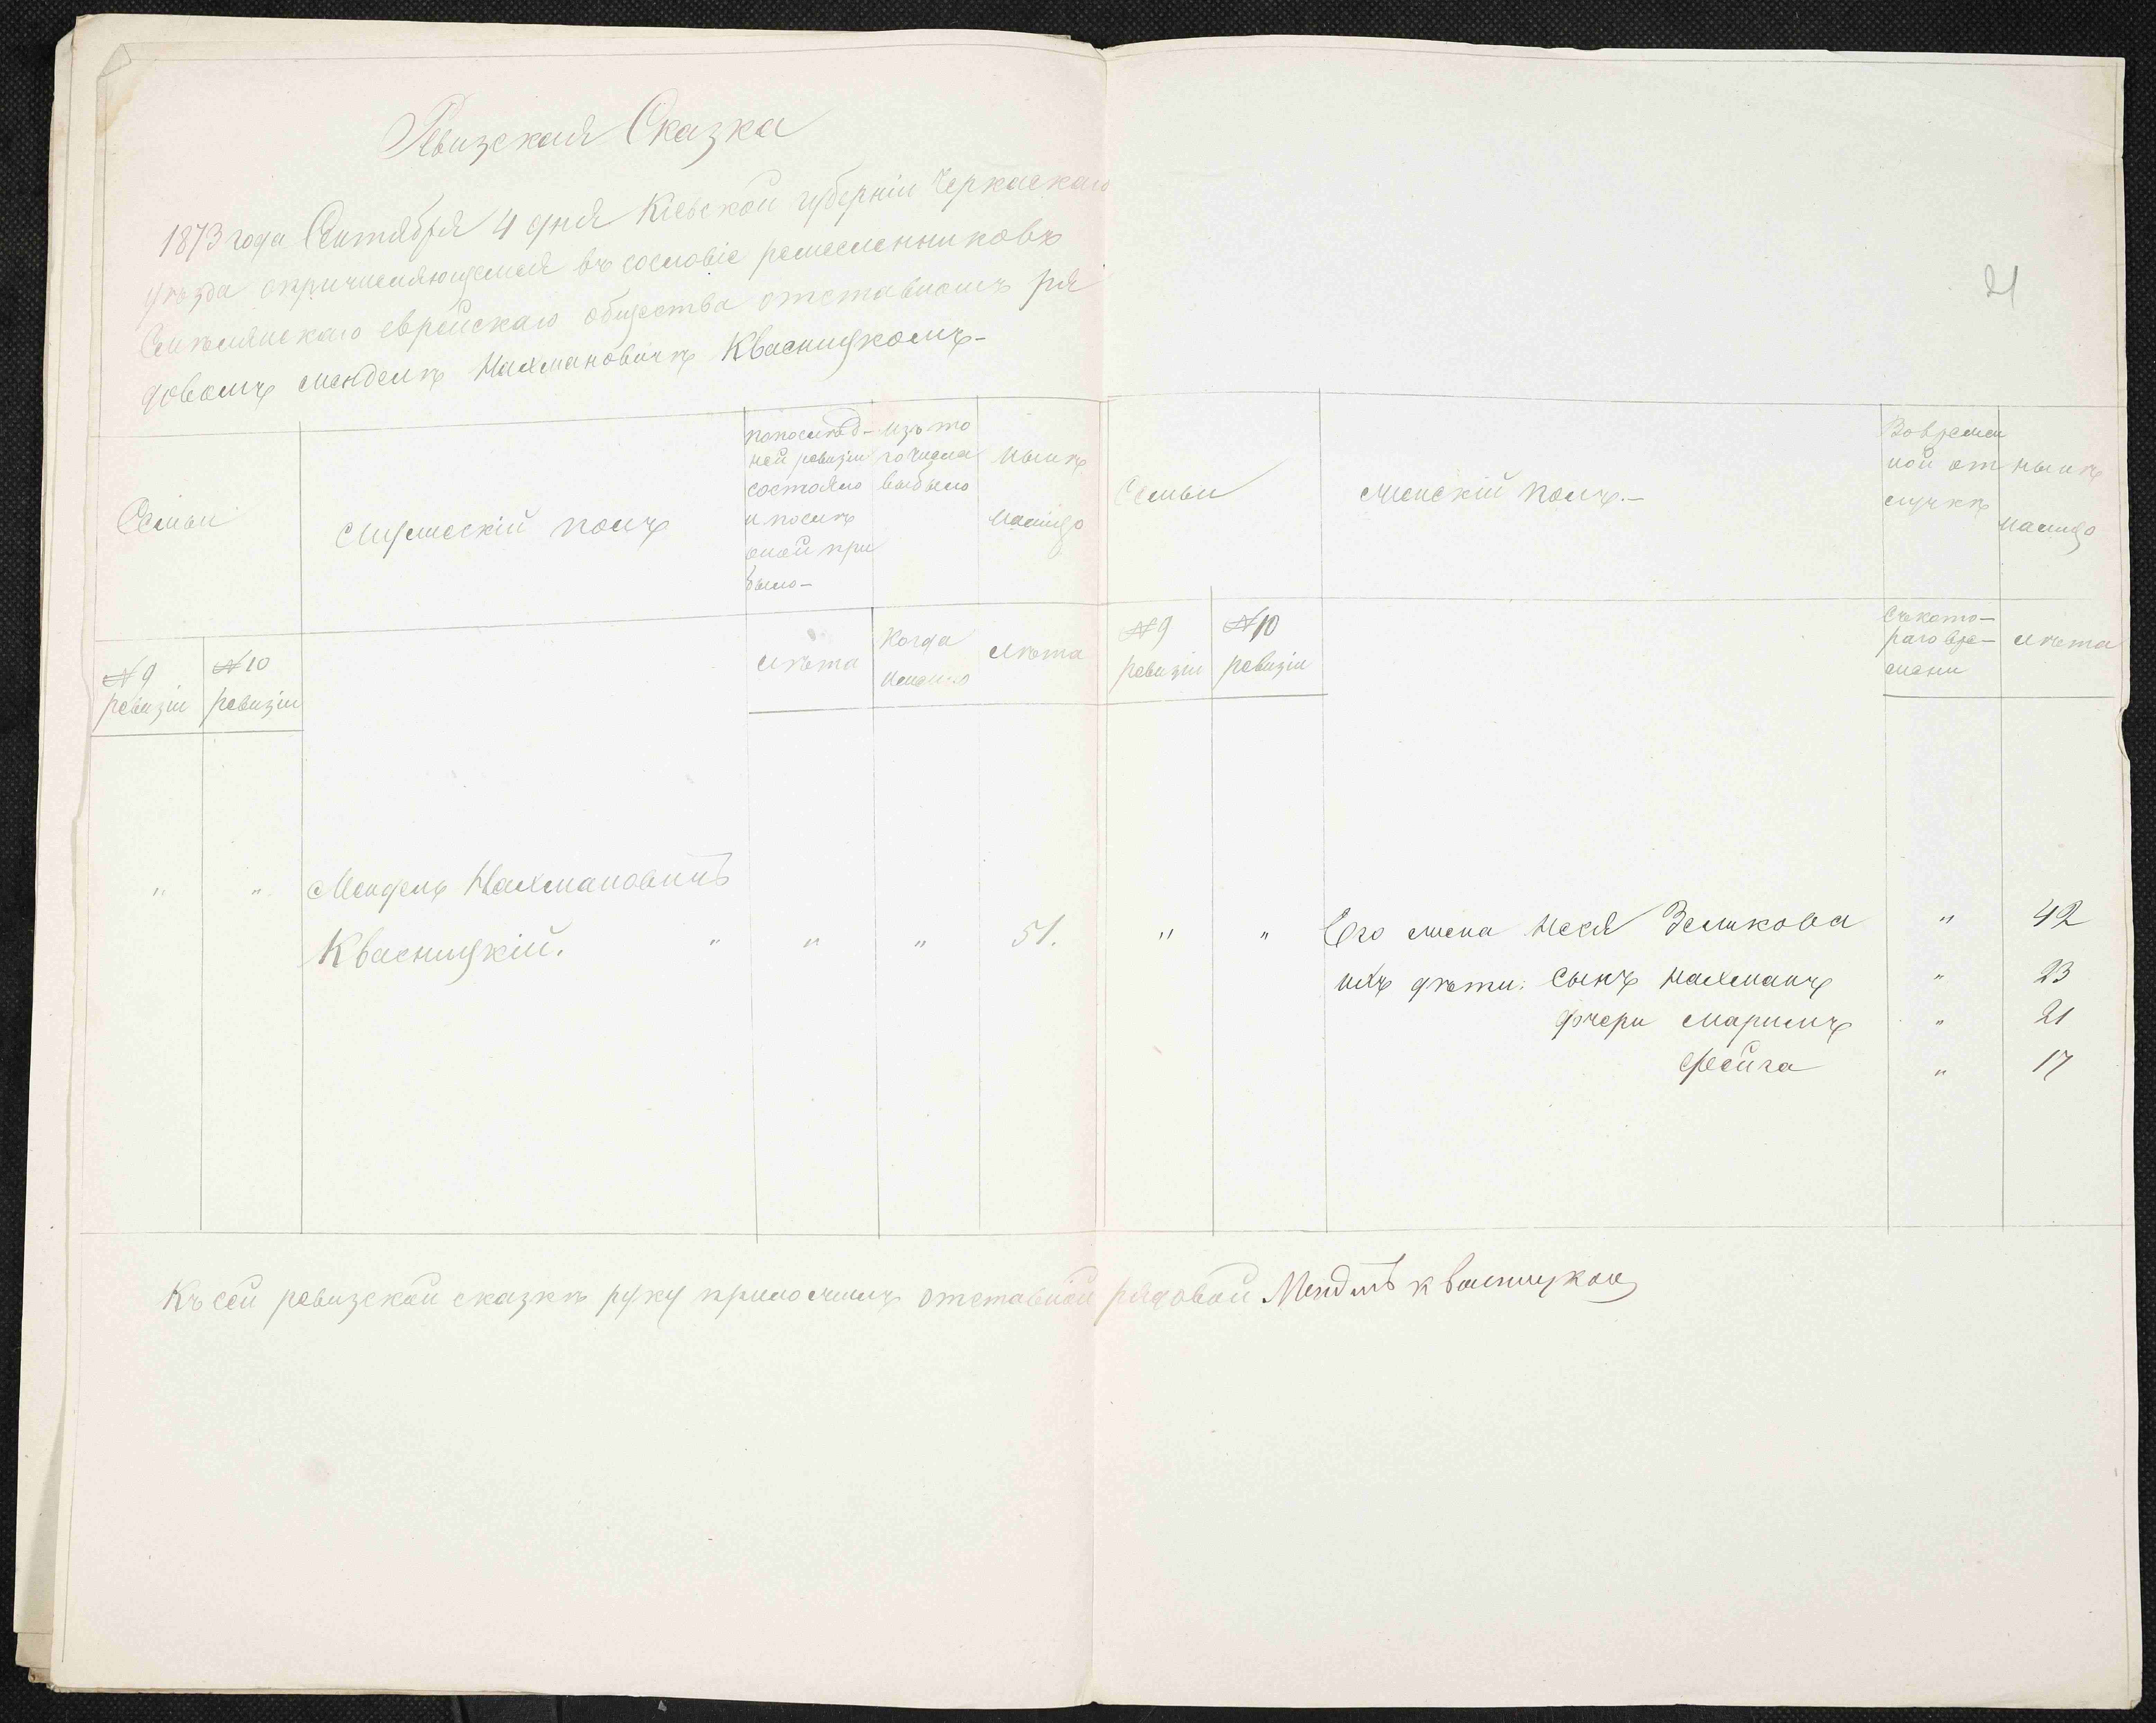 Ревизская Сказка
1873 года Сентября 4 дня Кіевской губерніи Черкаскаго
уѣзда опричисляющемся въ сословіе ремесленниковъ
Смѣлянскаго еврейскаго общества отставномъ ря
довомъ Мендель Нахмановичъ Квасницкомъ-
21
Семьи
Мужескій полъ
Попослѣд-
ней ревизіи
состояло
и послѣ
оной при
было-
Изъ то
го числа
выбыло
Нынѣ
налицо
Семьи
Женскій полъ.-
Вовремен
ной от
лучкѣ
Нынѣ
налицо
№ 9
ревизіи
№ 10
ревизіи
Лѣта
Когда
именно
Лѣта
№ 9
ревизіи
№ 10
ревизіи
Съкото-
раго вре-
мени
Лѣта
" " Мендель Нахмановичъ
Квасницкій. " " " 51.
" " Его жена Нехя Зелшкова " 42
ихъ дѣти: Сынъ Нахманъ " 23
дочери Маримъ " 21
Фейга " 17
Къ сей ревизской сказкѣ руку приложилъ отставной рядовой Мендель Квасницкой